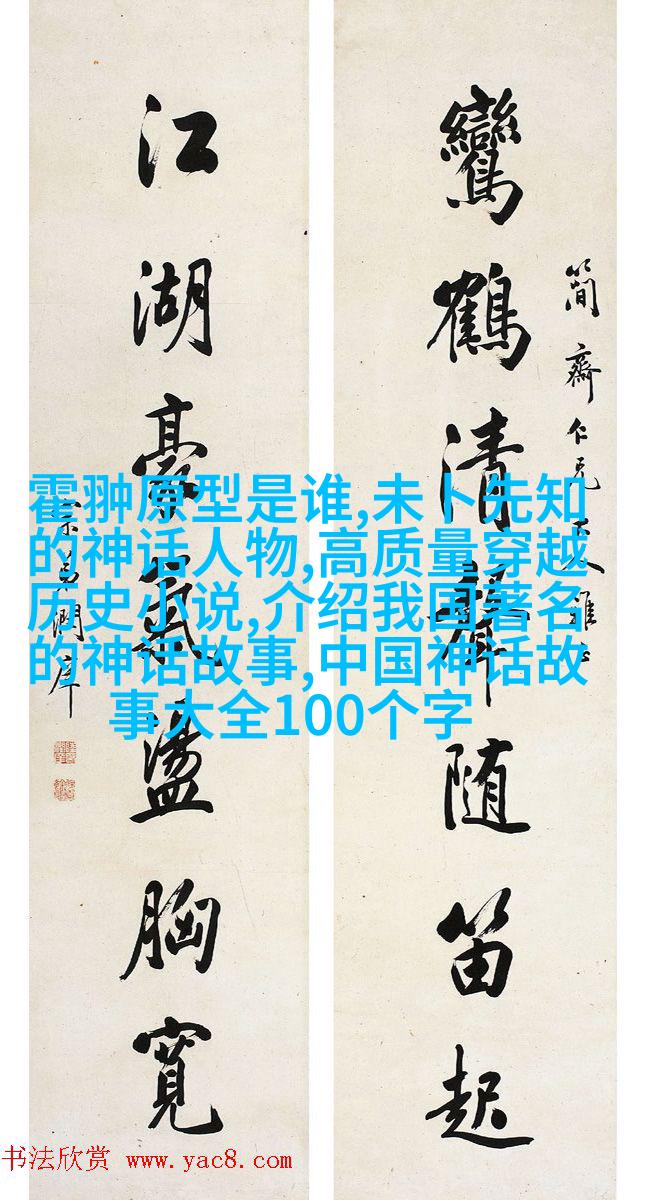 鸞鶴清聲随笛起
簡齋仁兄大人雅
江湖豪氣盪胸寬
霍翀原型是谁,未卜先知
的神话人物,高质量穿越
历史小说,介绍我国著名
的神话故事,中国神话故
事大全100个字
书法欣赏 www.yac8.com